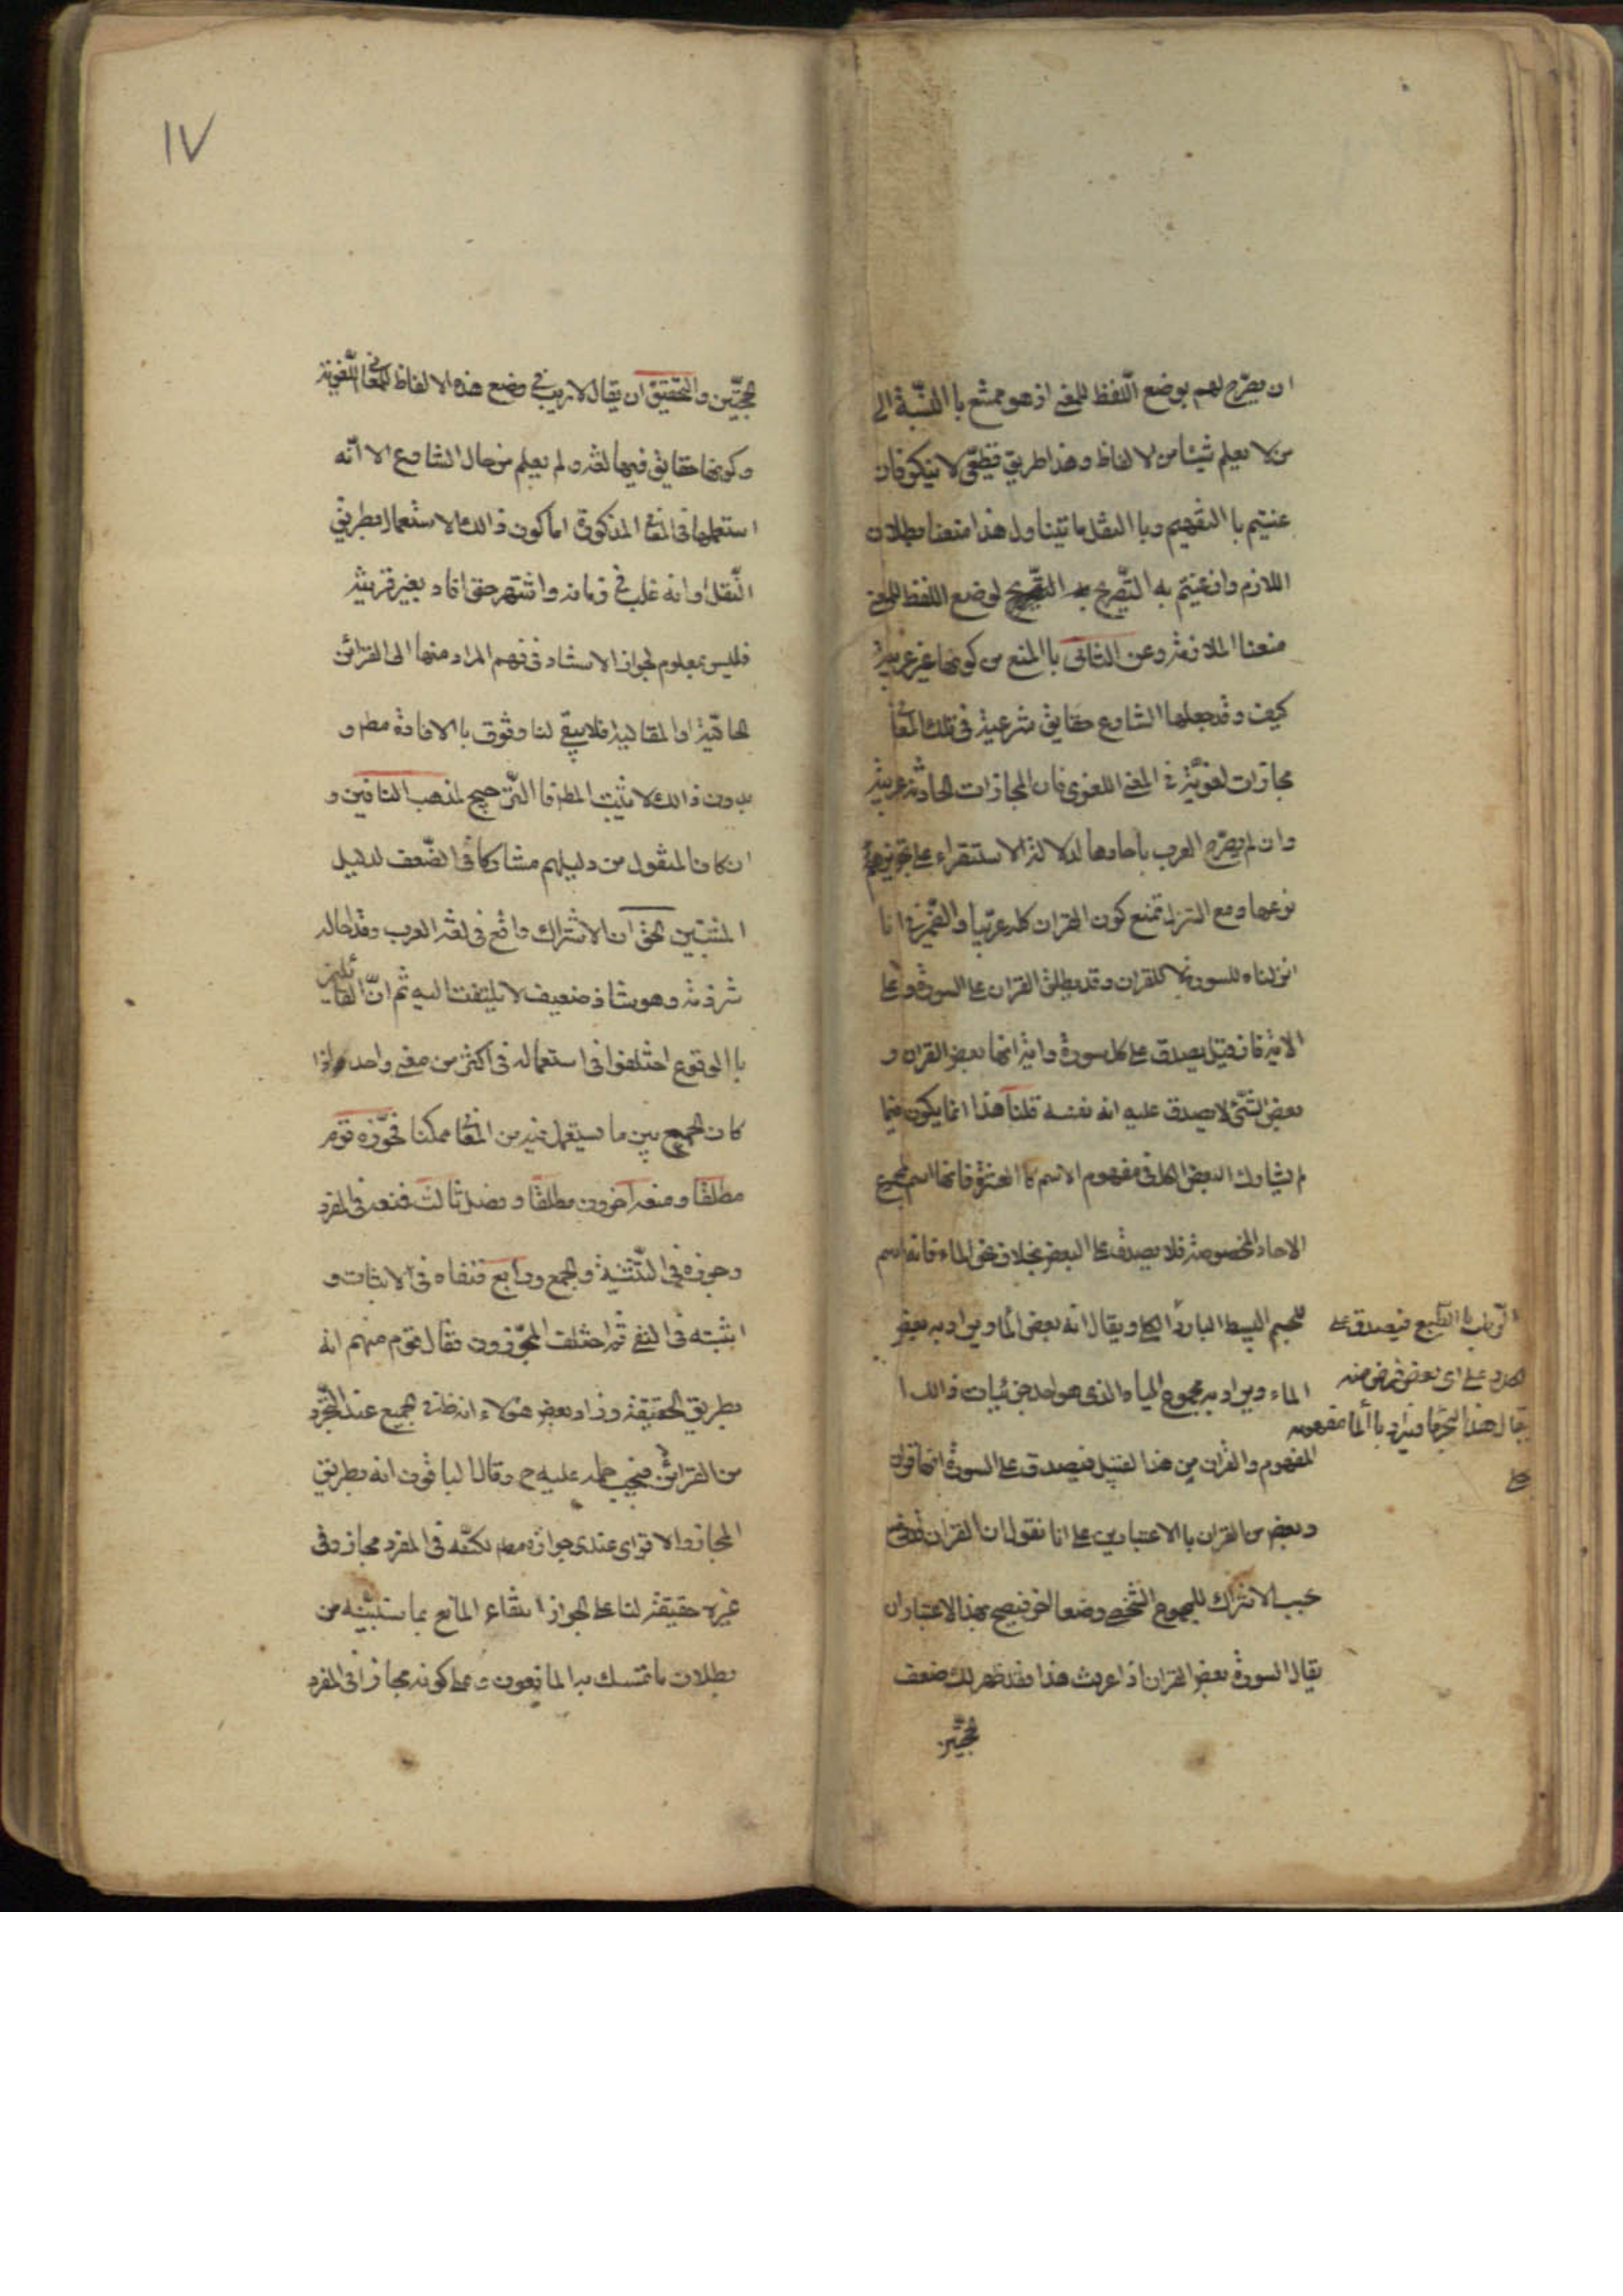 ان يصرح لهم بوضع اللفظ للمعنى اذ هو ممتنع با النسبة الى
من لا يعلم شيئا من الالفاظ وهذا طريق قطعى لا ينكر فان
عنيتم با التفهيم وبا النقل ما تيناول هذا منعنا بطلان
اللازم وان عنيتم به التصريح بوضع اللفظ للمعنى
منعنا الملازمة وعن الثانى با المنع من كونها غير عربية
كيف وقد جعلها الشارع حقايق شرعية فى تلك المعانى
مجازات لغوية فى المعنى اللغوى فان المجازات الحادثة عربية
وان لم يصرح العرب باحادها لدلالة الاستقراء على تجويزهم
نوعها ومع التنزل نمنع كون القران كله عربيا والضمير فى انا
انزلناه للسورة لا للقران وقد يطلق القران على السورة وعلى
الاية فان قيل يصدق على كل سورة واية انها بعض القران و
بعض الشئ لا يصدق عليه انه نفسه قلنا هذا انما يكون فيما
لم يشارك البعض الكل فى مفهوم الاسم كا العشرة فانها اسم لمجموع
الاحاد المخصوصة فلا يصدق على البعض بخلاف نحو الماء فانه اسم
للجسم البسيط البارد
الرطب با الطبع فيصدق على
الكل ويقال انه بعض الماء ويراد به بعض
الماء ويراد به مجموع المياه الذى هو احد جزئيات ذالك ا
المفهوم والقران من هذا القبيل فيصدق على السورة انها قران
وبعض من القران با الاعتبارين على انا نقول ان القران قد وضع
بحسب الاشتراك للمجموع الشخصى وضعا اخر فيصح بهذا الاعتبار ان
يقال السورة بعض القران اذا عرفت هذا فقد ظهر لك ضعف
الحجتين
١٧
الحجتين والتحقيق ان يقال لا ريب فى وضع هذه الالفاظ للمعانى اللغوية
وكونها حقايق فيها لغة ولم يعلم من حال الشارع الا انه
استعملها فى المعانى المذكورة اما كون ذالك الاستعمال بطريق
النقل او انه غلب فى زمانه واشتهر حتى افاد بغير قرينة
فليس بمعلوم لجواز الاستناد فى فهم المراد منها الى القرائن
الحالية او المقالية فلا يبقى لنا وثوق با الافادة مطم و
بدون ذالك لا يثبت المطم فا الترجيح لمذهب النافين و
ان كان المنقول من دليلهم مشاركا فى الضعف لدليل
المثبتين الحق ان الاشتراك واقع فى لغة العرب وقد احاله
شرذمة وهو شاذ ضعيف لا يلتفت اليه ثم ان القائلين
با الوقوع اختلفوا فى استعماله فى اكثر من معنى واحد اذا
كان الجمع بين ما يستعمل فيه من المعانى ممكنا فجوزه قوم
مطلقا ومنعه اخرون مطلقا وفصل ثالث فمنعه فى المفرد
وجوزه فى التثنية والجمع ورابع فنفاه فى الاثبات و
اثبته فى النفى ثم اختلف المجوزون فقال قوم منهم انه
بطريق الحقيقة وزاد بعض هؤلاء انه ظاهر فى الجميع عند التجرد
من القرائن فيجب حمله عليه ح وقال الباقون انه بطريق
المجاز والاقوى عندى جوازه مطم لكنه فى المفرد مجاز وفى
غيره حقيقة لنا على الجواز انتفاء المانع بما سنبينه من
بطلان ما تمسك به المانعون وعلى كونه مجازا فى المفرد